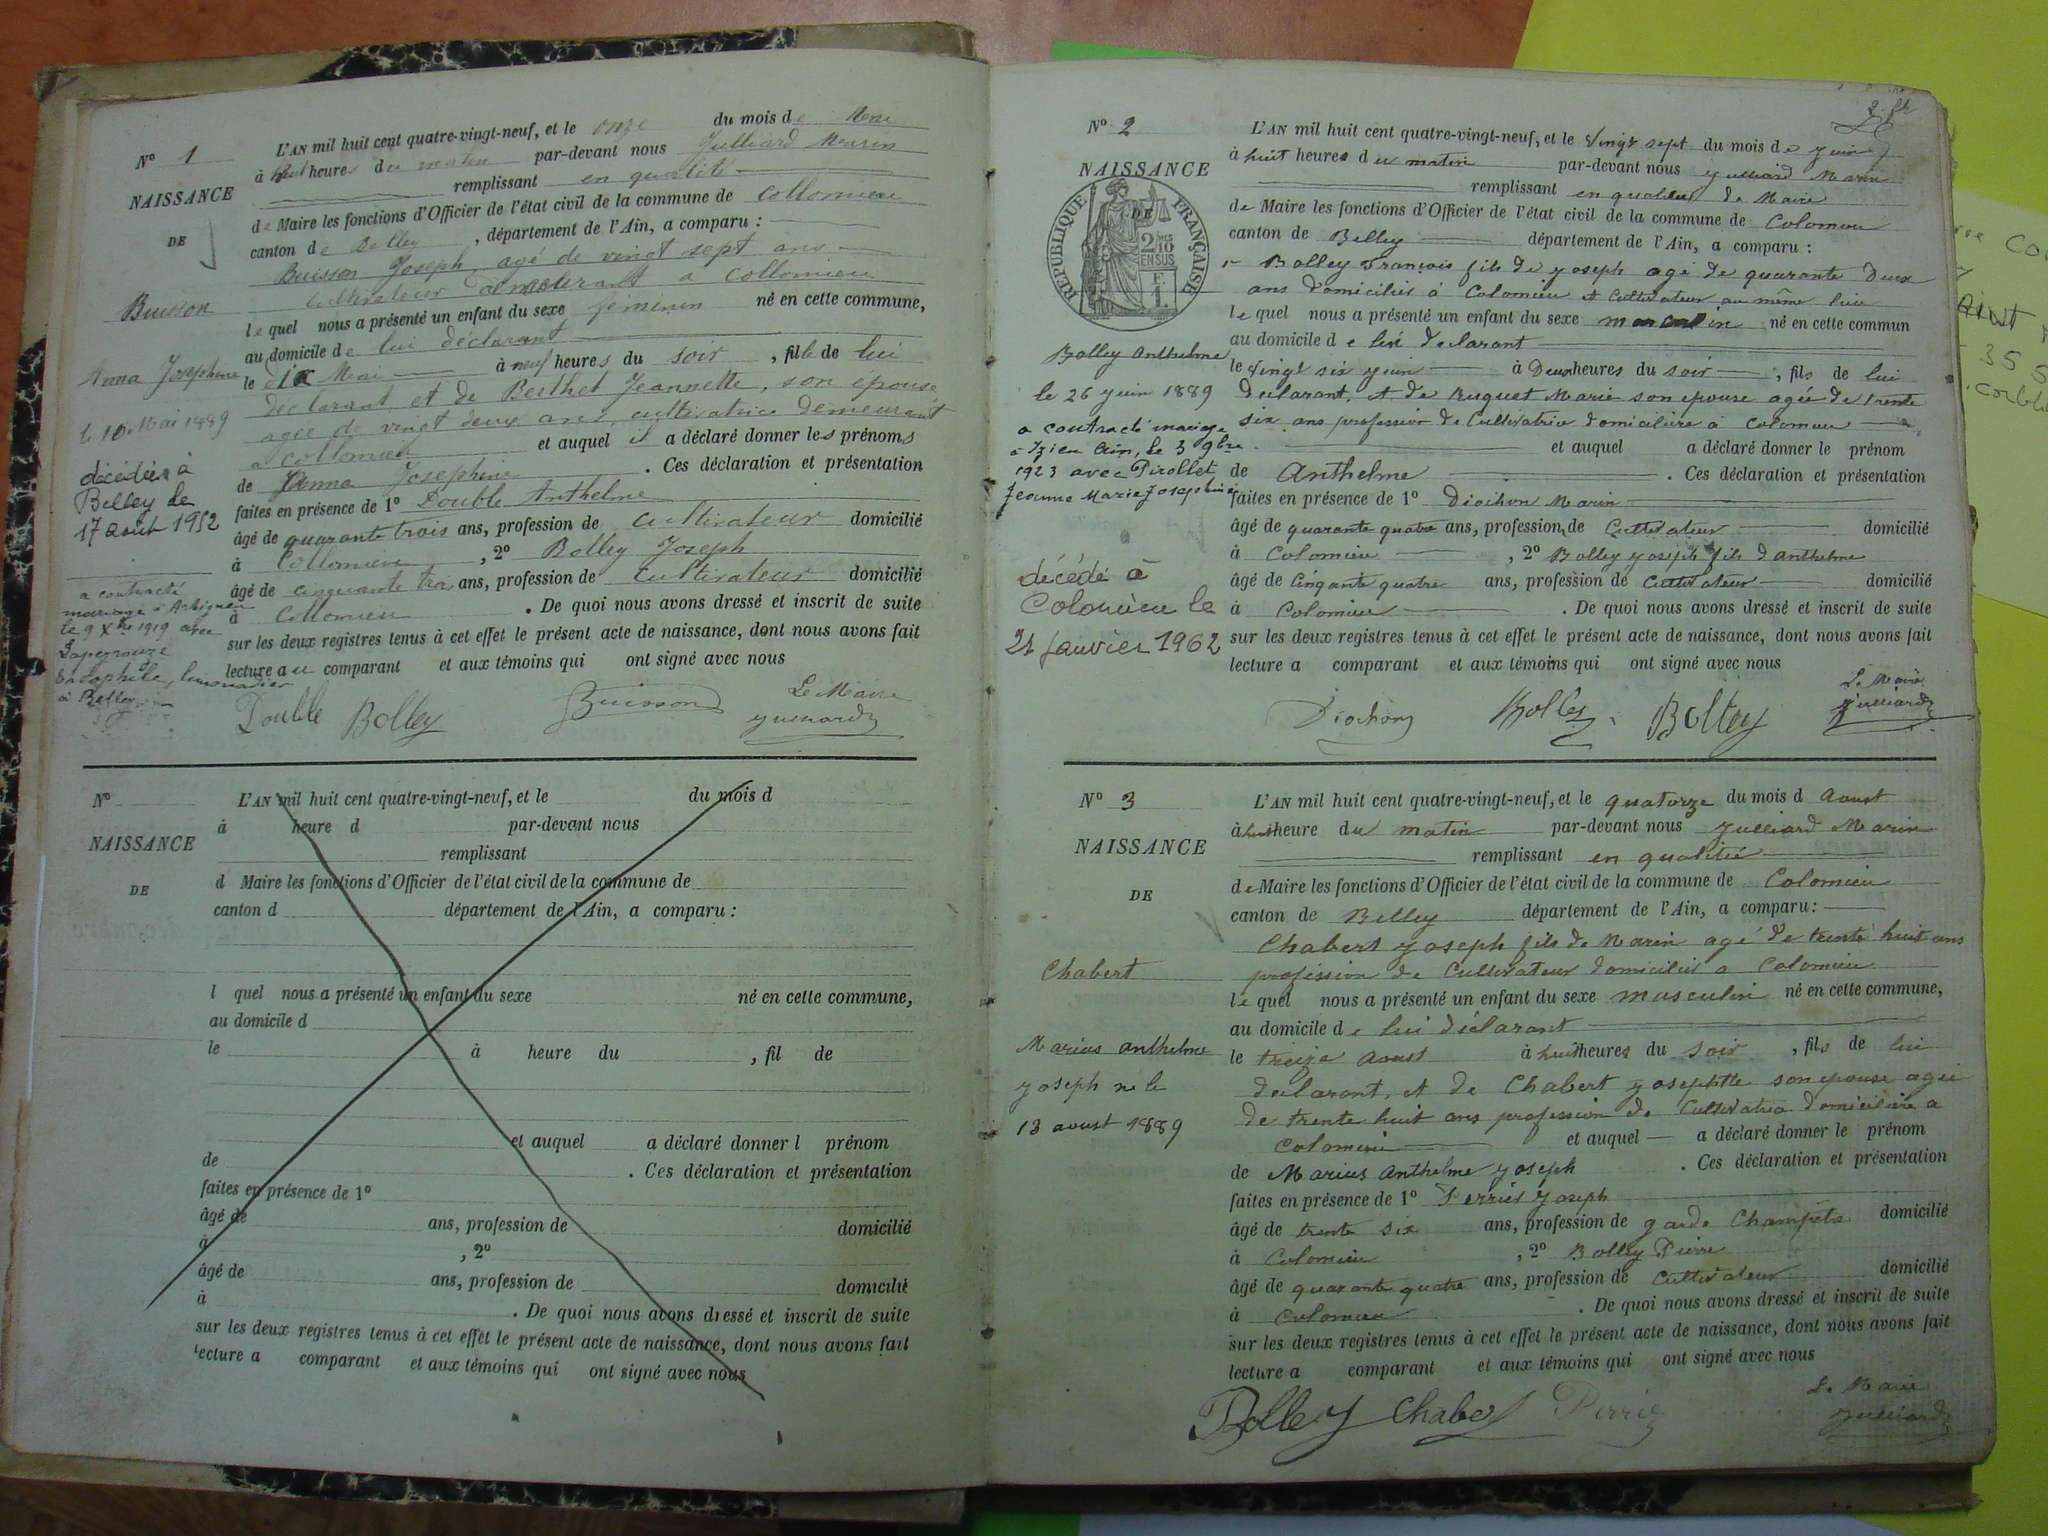 N° 1
NAISSANCE
DE
Buisson
Anna Josephine
le 10 Mai 1889
décédée à
Belley le
17 août 1952
a contracté
mariage à
le 9 Xbre 1919 avec
Lapeyrouze
à Belley
L'AN mil huit cent quatre-vingt-neuf, et le onze du mois de Mai
à huit heures du matin par-devant nous Julliard Marin
remplissant en qualité
de Maire les fonctions d'Officier de l'état civil de la commune de Collomieu
canton de Belley, département de l'Ain, a comparu :
Buisson Joseph, agé de vingt sept ans
cultivateur demeurant a Collomieu
lequel nous a présenté un enfant du sexe féminin né en cette commune,
au domicile de lui déclarant
le dix Mai à neuf heures du soir, fille de lui
déclarant et de Berthet Jeannette, son épouse
agée de vingt deux ans, cultivatrice demeurant
a Collomieu et auquel il a déclaré donner les prénoms
de Anna Josephine. Ces déclaration et présentation
faites en présence de 1° Double Anthelme
âgé de quarante trois ans, profession de cultivateur domicilié
à Collomieu, 2° Bolley Joseph
âgé de cinquante trois ans, profession de cultivateur domicilié
à Collomieu. De quoi nous avons dressé et inscrit de suite
sur les deux registres tenus à cet effet le présent acte de naissance, dont nous avons fait
lecture au comparant et aux témoins qui ont signé avec nous
Double Bolley Buisson Le Maire
Julliard
N°
NAISSANCE
DE
L'AN mil huit cent quatre-vingt-neuf, et le du mois d
à heure d par-devant nous
remplissant
d Maire les fonctions d'Officier de l'état civil de la commune de
canton d département de l'Ain, a comparu :
l quel nous a présenté un enfant du sexe né en cette commune,
au domicile d
le à heure du , fil de
et auquel a déclaré donner l prénom
de . Ces déclaration et présentation
faites en présence de 1°
âgé de ans, profession de domicilié
à , 2°
âgé de ans, profession de domicilié
à . De quoi nous avons dressé et inscrit de suite
sur les deux registres tenus à cet effet le présent acte de naissance, dont nous avons fait
lecture a comparant et aux témoins qui ont signé avec nous
N° 2
NAISSANCE
DE
RÉPUBLIQUE FRANÇAISE
2/10 EN SUS
F. 1.
Bolley Anthelme
le 26 juin 1889
a contracté mariage
à Izieu Ain, le 3 9bre
1923 avec Pirollet
Jeanne Marie Josephine
décédé à
Colomieu le
21 janvier 1962
L'AN mil huit cent quatre-vingt-neuf, et le vingt sept du mois de juin
à huit heures du matin par-devant nous Julliard Marin
remplissant en qualité de Maire
de Maire les fonctions d'Officier de l'état civil de la commune de Colomieu
canton de Belley département de l'Ain, a comparu :
Bolley François fils de Joseph agé de quarante deux
ans domicilié à Colomieu et Cultivateur au même lieu
lequel nous a présenté un enfant du sexe masculin né en cette commun
au domicile de lui declarant
le vingt six juin à Deux heures du soir, fils de lui
declarant, et de Ruguet Marie son epouse agée de trente
six ans profession de Cultivatrice domicilière à Colomieu
et auquel a déclaré donner le prénom
de Anthelme . Ces déclaration et présentation
faites en présence de 1° Diochon Marin
âgé de quarante quatre ans, profession de Cultivateur domicilié
à Colomieu, 2° Bolley Joseph fils d'anthelme
âgé de Cinqante quatre ans, profession de Cultivateur domicilié
à Colomieu . De quoi nous avons dressé et inscrit de suite
sur les deux registres tenus à cet effet le présent acte de naissance, dont nous avons fait
lecture a comparant et aux témoins qui ont signé avec nous
Diochon Bolley Bolley Le Maire
Julliard
N° 3
NAISSANCE
DE
Chabert
Marius anthelme
Joseph né le
13 avust 1889
L'AN mil huit cent quatre-vingt-neuf, et le quatorze du mois d Avust
à huit heure du matin par-devant nous Julliard Marin
remplissant en qualitié
de Maire les fonctions d'Officier de l'état civil de la commune de Colomieu
canton de Belley département de l'Ain, a comparu :
Chabert Joseph fils de Marin agé de trente huit ans
profession de Cultivateur domicilié a Colomieu
lequel nous a présenté un enfant du sexe masculin né en cette commune,
au domicile de lui déclarant
le treize avust à huit heures du soir, fils de lui
declarant, et de Chabert Josephtte son epouse agée
de trente huit ans profession de Cultivatrice domicilière a
Colomieu et auquel a déclaré donner le prénom
de Marius Anthelme Joseph . Ces déclaration et présentation
faites en présence de 1° Perrier Joseph
âgé de trente six ans, profession de garde Champêtre domicilié
à Colomieu, 2° Bolley Pierre
âgé de quarante quatre ans, profession de Cultivateur domicilié
à Colomieu . De quoi nous avons dressé et inscrit de suite
sur les deux registres tenus à cet effet le présent acte de naissance, dont nous avons fait
lecture a comparant et aux témoins qui ont signé avec nous
Bolley Chabert Perrier Le Maire
Julliard